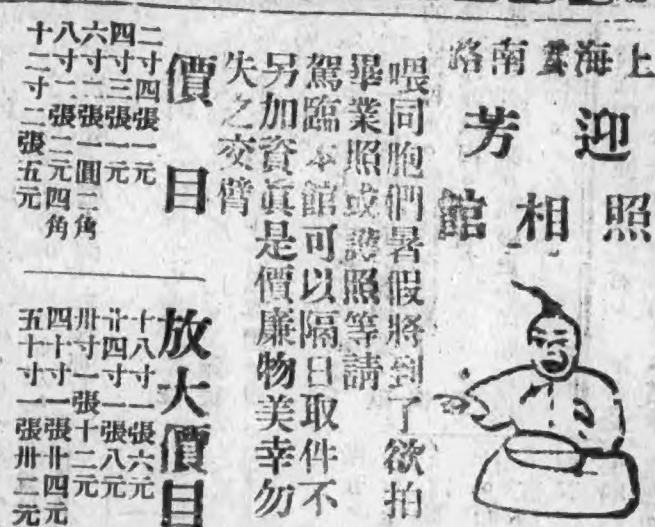 上海雲南路
迎芳
照相館
喂同胞們暑假將到了欲拍
畢業照或護照等請
駕臨本館可以隔日取件不
另加資眞是價廉物美幸勿
失之交臂
價目
二寸四張一元
四寸三張一元
六寸二張一圓二角
八寸二張二元四角
十二寸二張五元
放大價目
十八寸一張六元
廿四寸一張八元
卅寸一張十二元
四十寸一張廿四元
五十寸一張卅二元